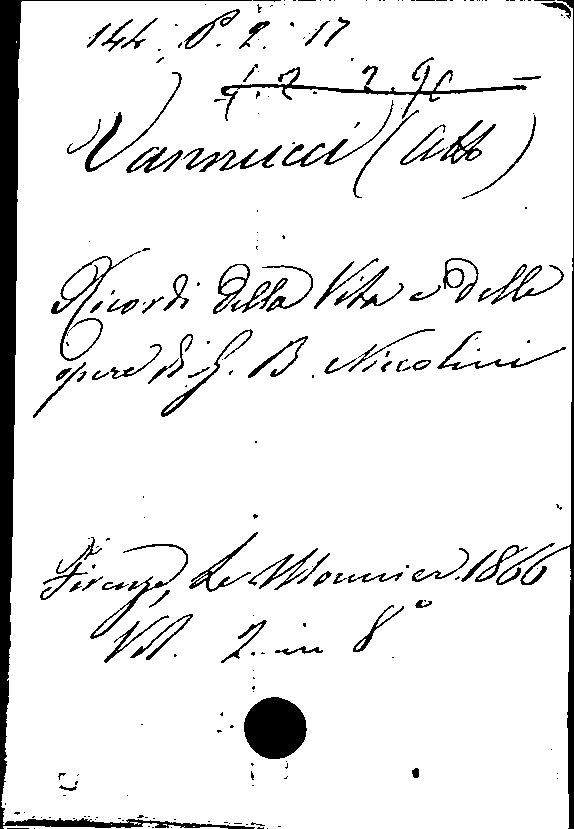 144. P. 2. 17
4. 2. 2. 90
Vannucci (Atto)
Ricordi della Vita e delle
opere di G. B. Niccolini
Firenze, Le Monnier. 1866
Vol. 2. in 8°